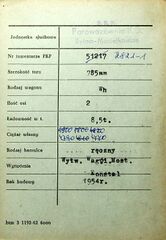 Jednostka służbowa
Parowozownia
Nr inwentarza PKP 51217 2821-1
Szerokość toru 785mm
Rodzaj wagonu Wh
Ilość osi 2
Ładowność w t. 8,5t.
Ciężar własny
Rodzaj hamulca ręczny
Wytwórnia Wytw. Wag. i Most.
Konstal
Rok budowy 1954r.